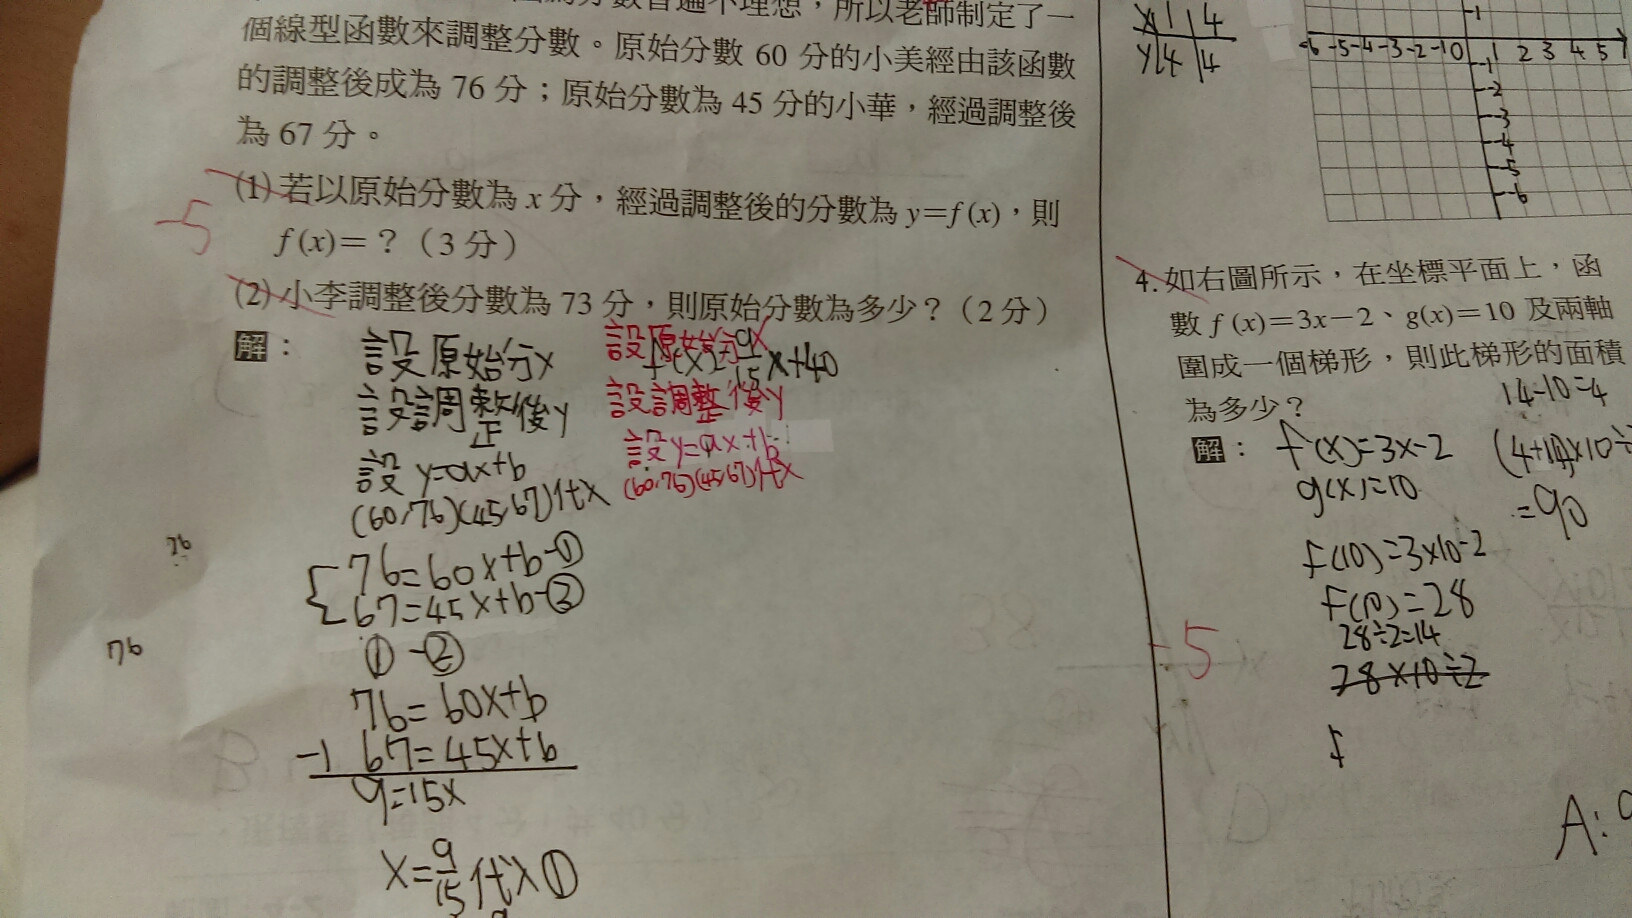 不理想，所以老師制定了一
個線型函數來調整分數。原始分數 60 分的小美經由該函數
的調整後成為 76 分；原始分數為 45 分的小華，經過調整後
為 67 分。
(1) 若以原始分數為 x 分，經過調整後的分數為 y=f(x)，則
f(x)=？（3 分）
-5
(2) 小李調整後分數為 73 分，則原始分數為多少？（2 分）
解：
設原始分x
設調整後y
設 y=ax+b
(60,76)(45,67)代x
{76=60x+b-①
67=45x+b-②
①-②
76=60x+b
-) 67=45x+b
9=15x
x=9/15代x①
76
76
f(x)=9/15x+40
設原始分x
設調整後y
設y=ax+b
(60,76)(45,67)代x
x 1 4
y 4 4
-6 -5 -4 -3 -2 -1 0 1 2 3 4 5
-1
-1
-2
-3
-4
-5
-6
4. 如右圖所示，在坐標平面上，函
數 f(x)=3x-2、g(x)=10 及兩軸
圍成一個梯形，則此梯形的面積
為多少？
14-10=4
解：
f(x)=3x-2
g(x)=10
(4+14)x10÷
=90
f(10)=3x10-2
f(10)=28
28÷2=14
28x10÷2
f
-5
A:9